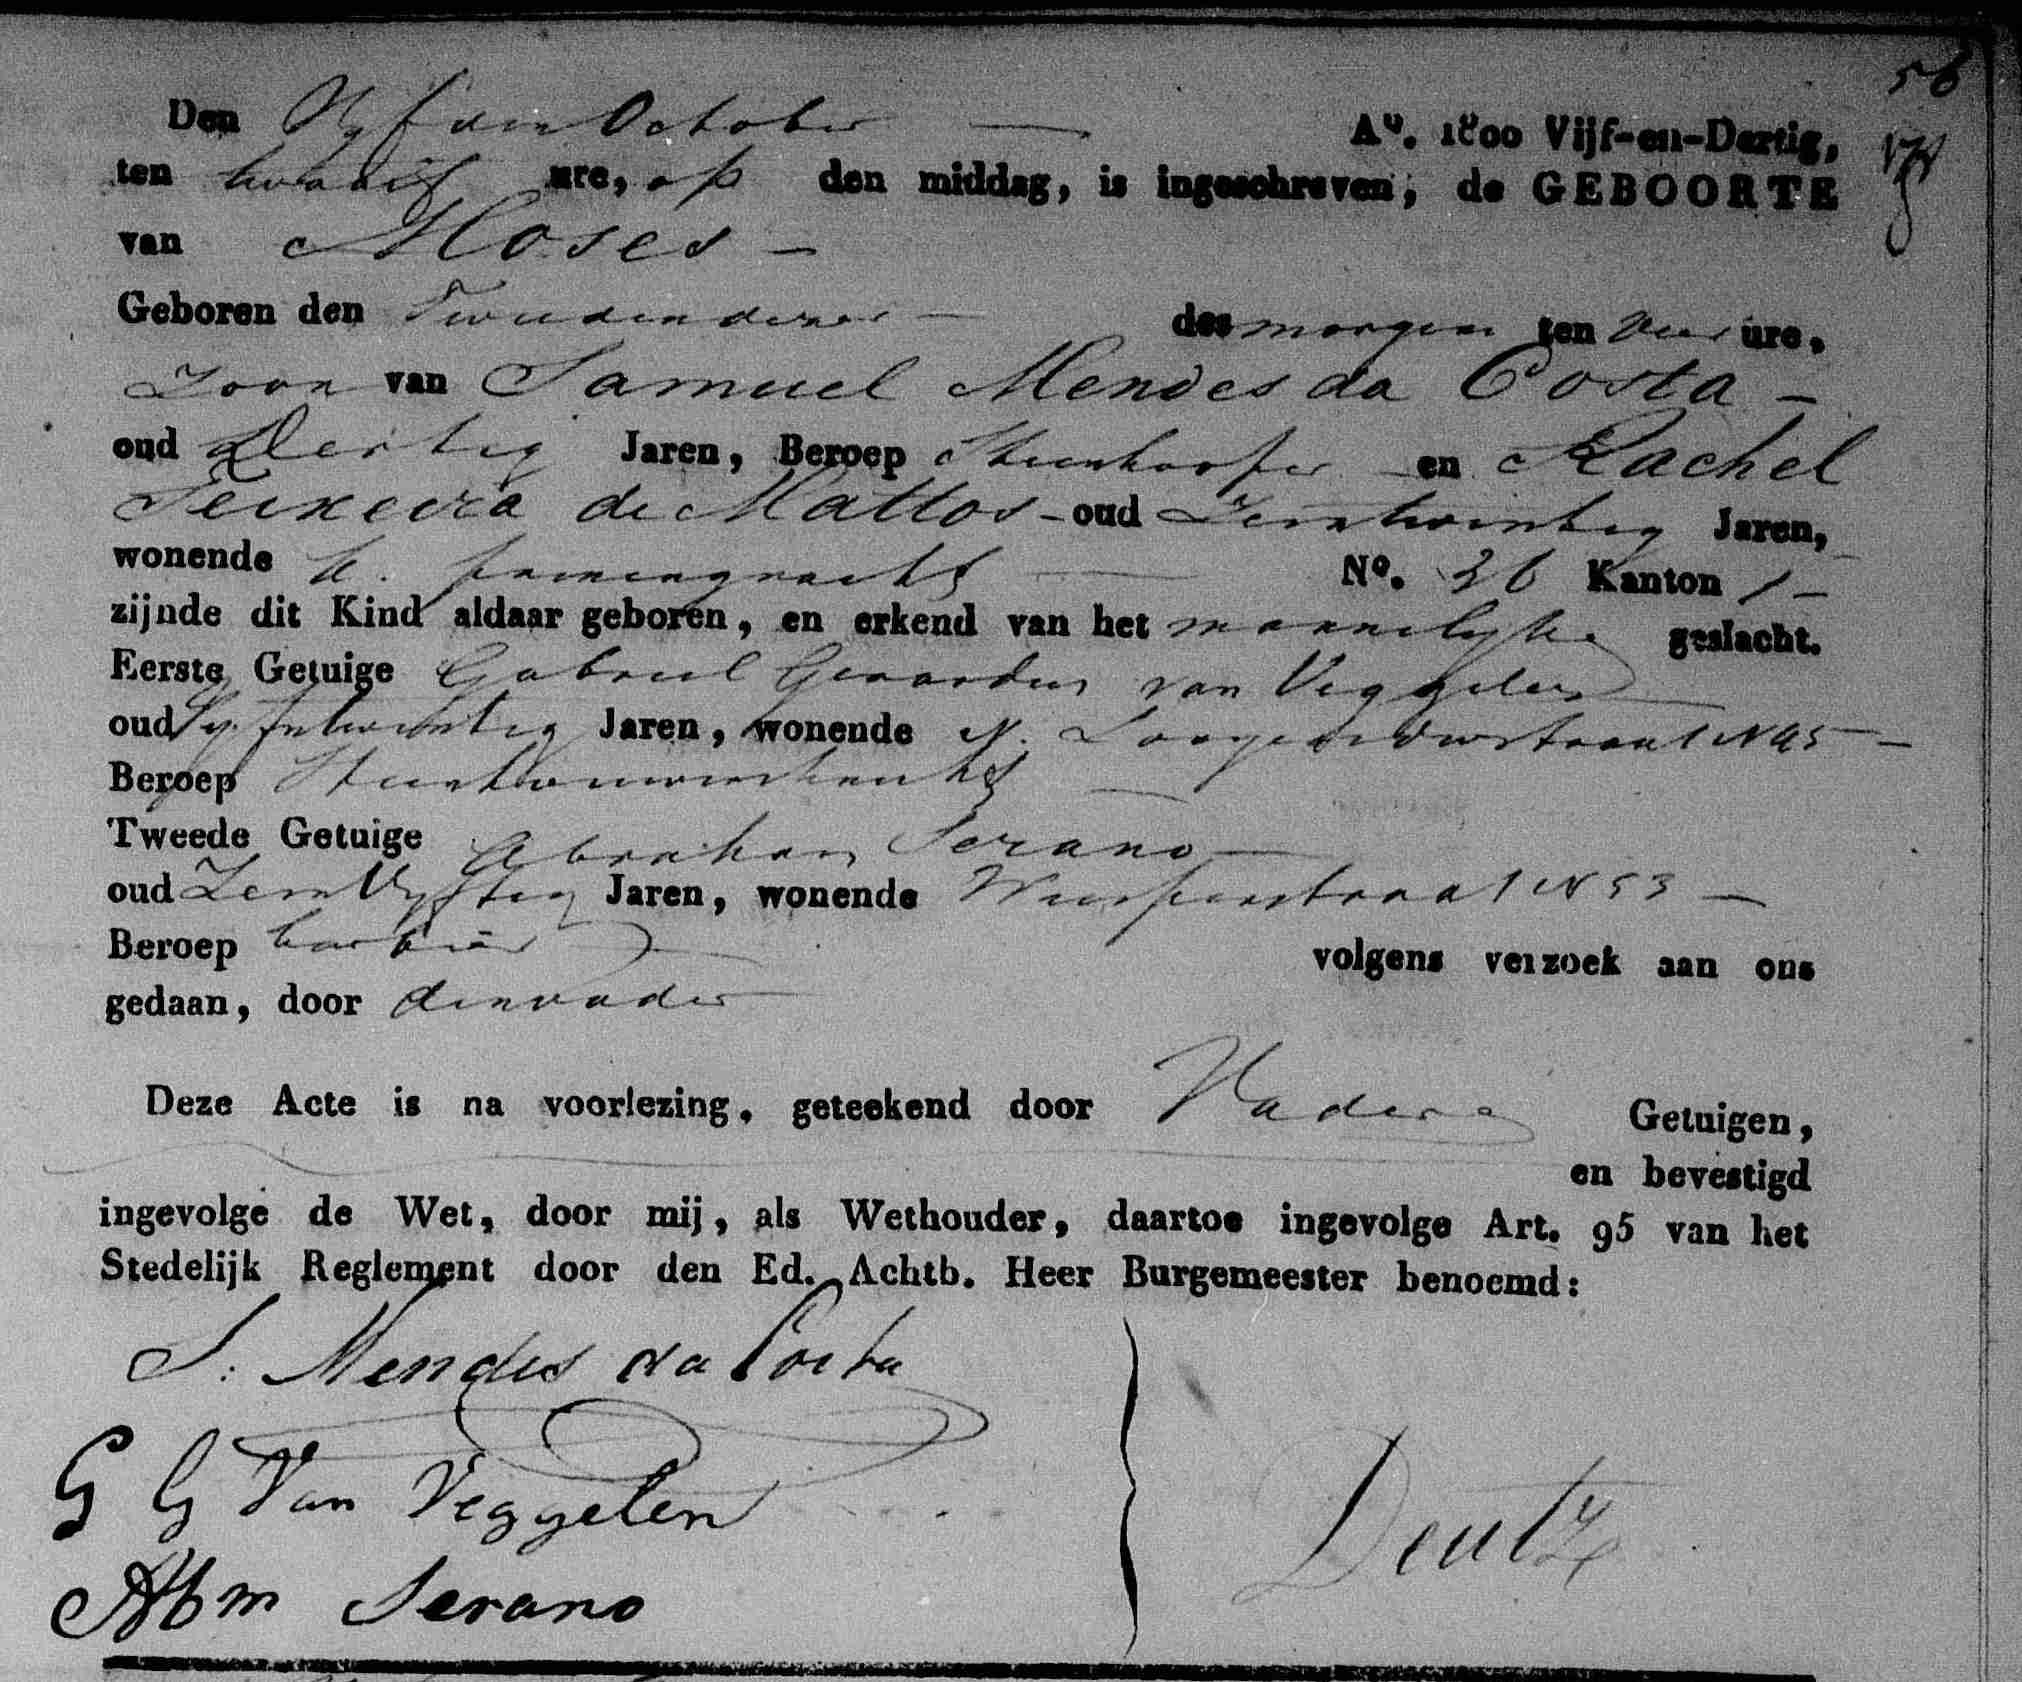 56
Den Vyfden October — A°. 1800 Vijf-en-Dertig,
ten twaalf ure, op den middag, is ingeschreven, de GEBOORTE
van Moses —
Geboren den Tweeden dezer — des morgens ten vier ure,
Zoon van Samuel Mendes da Costa —
oud Dertig Jaren, Beroep en Rachel
Teixeira de Mattos - oud Zesentwintig Jaren,
wonende N°. 36 Kanton 1 —
zijnde dit Kind aldaar geboren, en erkend van het mannelyke geslacht.
Eerste Getuige Gabriel Gerardus van Veggelen
oud Vyfentwintig Jaren, wonende N. N 45 —
Beroep
Tweede Getuige Abraham Serano —
oud Jaren, wonende Weesperstraat N 53 —
Beroep barbier — volgens verzoek aan ons
gedaan, door den vader
Deze Acte is na voorlezing, geteekend door Vader en Getuigen,
en bevestigd
ingevolge de Wet, door mij, als Wethouder, daartoe ingevolge Art. 95 van het
Stedelijk Reglement door den Ed. Achtb. Heer Burgemeester benoemd:
S: Mendes da Costa
G G Van Veggelen
Deutz
Abm Serano